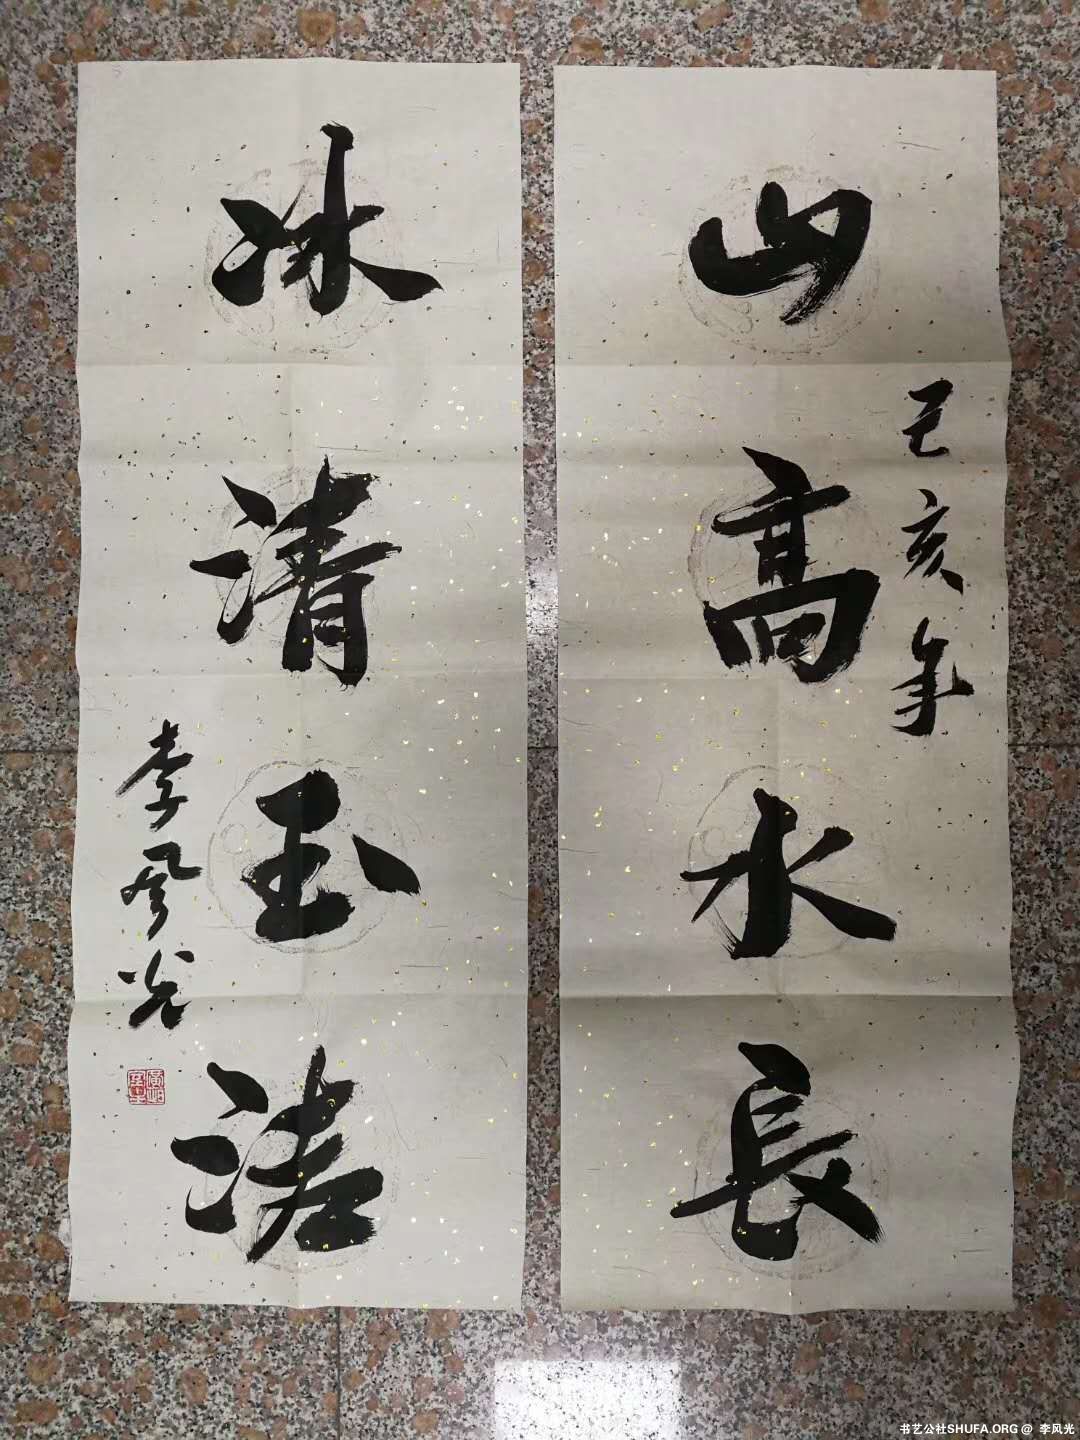 山高水長
己亥年
冰清玉洁
李风光
书艺公社SHUFA.ORG @ 李风光